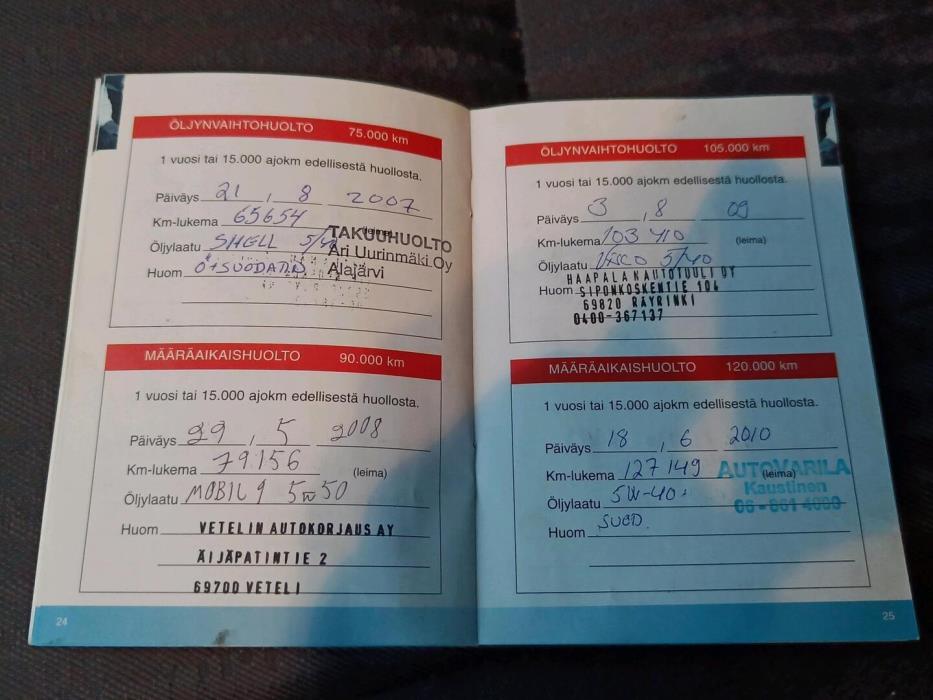 ÖLJYNVAIHTOHUOLTO 75.000 km
1 vuosi tai 15.000 ajokm edellisestä huollosta.
Päiväys 21 , 8 2007
Km-lukema 65654 (leima)
Öljylaatu SHELL 5/40
Huom Ö+SUODATIN
TAKUUHUOLTO
Ari Uurinmäki Oy
Alajärvi
MÄÄRÄAIKAISHUOLTO 90.000 km
1 vuosi tai 15.000 ajokm edellisestä huollosta.
Päiväys 29 , 5 2008
Km-lukema 79.156 (leima)
Öljylaatu MOBIL 1 5w50
Huom VETELIN AUTOKORJAUS AY
ÄIJÄPATINTIE 2
69700 VETELI
24
ÖLJYNVAIHTOHUOLTO 105.000 km
1 vuosi tai 15.000 ajokm edellisestä huollosta.
Päiväys 3 , 8 09
Km-lukema 103 410 (leima)
Öljylaatu 5/40
HAAPALAN AUTOTUULI OY
Huom SIPONKOSKENTIE 104
69820 RÄYRINKI
0400-367137
MÄÄRÄAIKAISHUOLTO 120.000 km
1 vuosi tai 15.000 ajokm edellisestä huollosta.
Päiväys 18 , 6 2010
Km-lukema 127 149 (leima)
Öljylaatu 5W-40
Huom SUOD.
AUTOVARILA
Kaustinen
06-861 4000
25